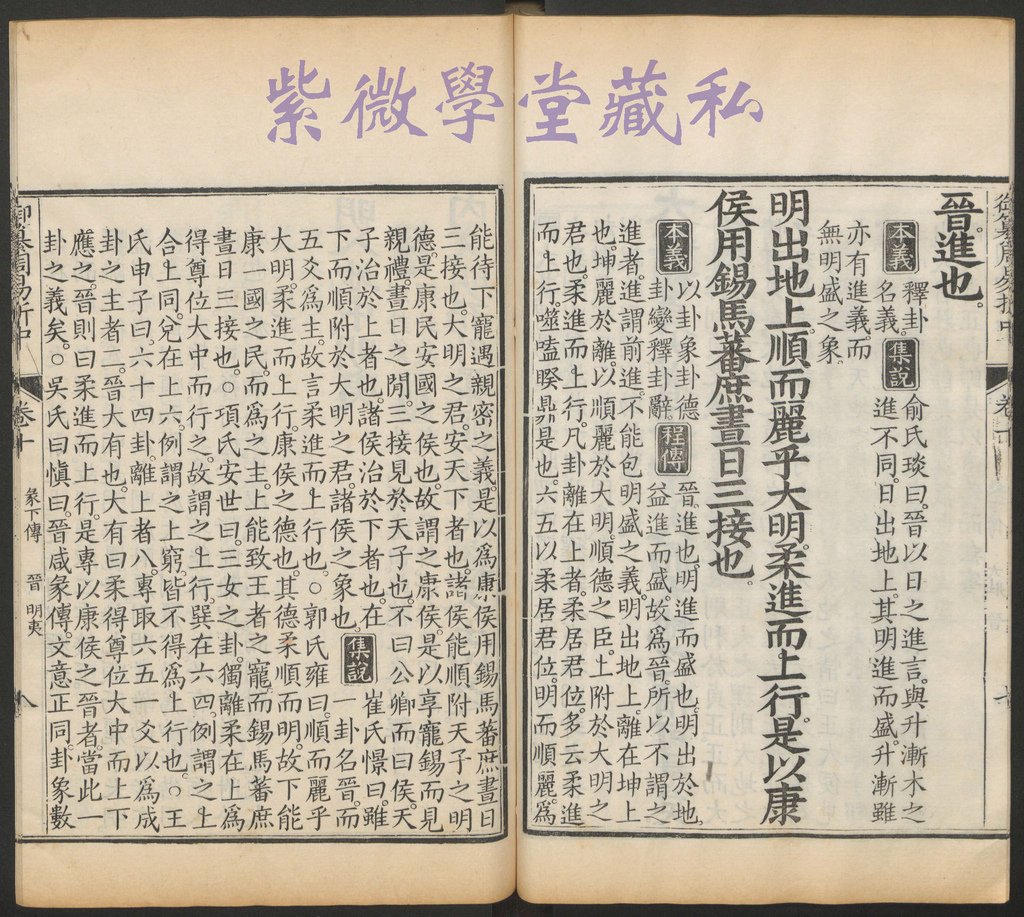 紫微學堂藏私
晉進也。
本義 釋卦
名義。
集說 俞氏琰曰。晉以日之進言。與升漸木之
進不同。日出地上。其明進而盛。升漸雖
亦有進義。而
無明盛之象。
明出地上。順而麗乎大明。柔進而上行。是以康
侯用錫馬蕃庶。晝日三接也。
本義 以卦象卦德
卦變釋卦辭。
程傳 晉。進也。明進而盛也。明出於地。
益進而盛。故爲晉。所以不謂之
進者。謂前進。不能包明盛之義。明出地上。離在坤上
也。坤麗於離。以順麗於大明。順德之臣。上附於大明之
君也。柔進而上行。凡卦離在上者。柔居君位。多云柔進
而上行。噬嗑睽鼎是也。六五以柔居君位。明而順麗。爲
能待下寵遇親密之義。是以爲康侯用錫馬蕃庶晝日
三接也。大明之君。安天下者也。諸侯能順附天子之明
德。是康民安國之侯也。故謂之康侯。是以享寵錫而見
親禮。晝日之閒。三接見於天子也。不曰公卿而曰侯。天
子治於上者也。諸侯治於下者也。在
下而順附於大明之君。諸侯之象也。
集說 崔氏憬曰。雖
一卦名晉。而
五爻爲主。故言柔進而上行也。○郭氏雍曰。順而麗乎
大明。柔進而上行。康侯之德也。其德柔順而明。故下能
康一國之民。而爲之主。上能致王者之寵。而錫馬蕃庶
晝日三接也。○項氏安世曰。三女之卦。獨離柔在上。爲
得尊位大中而行之。故謂之上行。巽在六四。例謂之上
合上同。兌在上六。例謂之上窮。皆不得爲上行也。○王
氏申子曰。六十四卦。離上者八。專取六五一爻以爲成
卦之主者二。晉大有也。大有曰柔得尊位大中而上下
應之。晉則曰柔進而上行。是專以康侯之晉者。當此一
卦之義矣。○吳氏曰愼曰。晉咸彖傳。文意正同。卦象數
卷十
彖下傳
晉 明夷
八